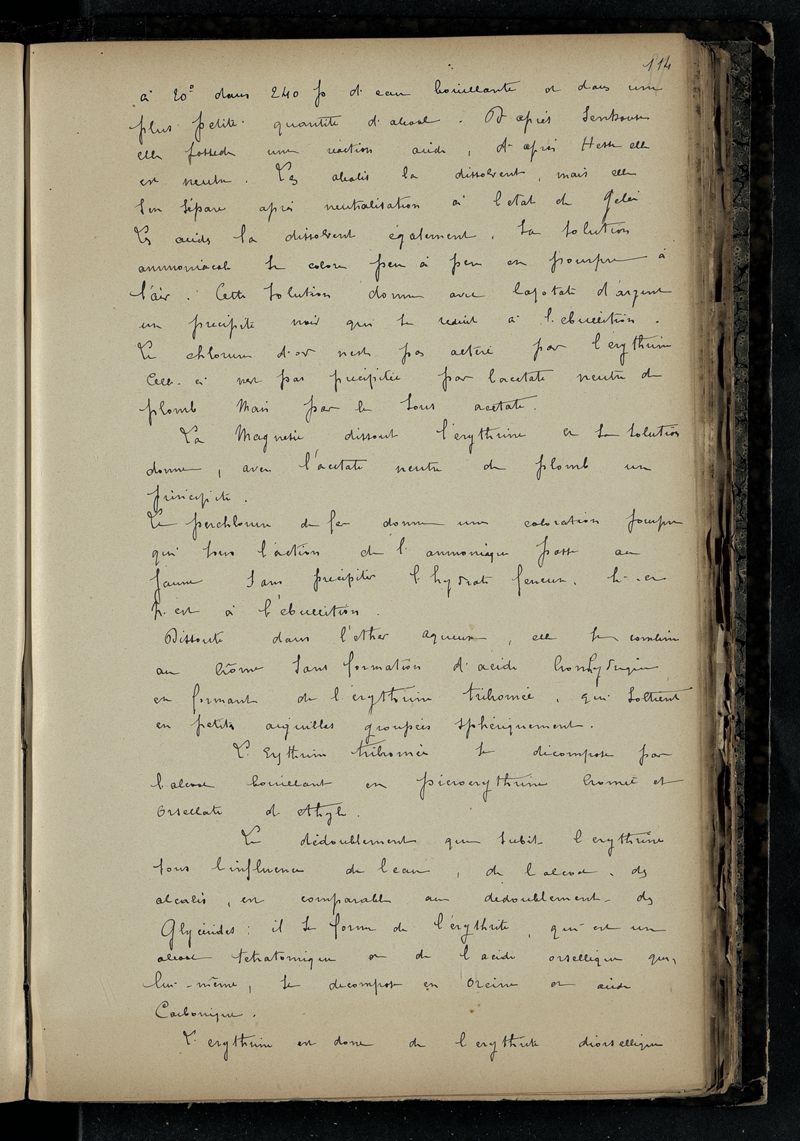 114
à 20° dans 240 p d'eau bouillante et dans une
plus petite quantité d'alcool. D'après Stenhouse
elle possède une réaction acide, d'après Hesse elle
est neutre. Les alcalis la dissolvent, mais elle
s'en sépare après neutralisation à l'état de gelée
Les acides la dissolvent également. La solution
ammoniacale se colore peu à peu en pourpre à
l'air. Cette solution donne avec l'azotate d'argent
un précipité noir qui se réduit à l'ébullition.
Le chlorure d'or n'est pas altéré par l'érythrine
Celle-ci n'est pas précipitée par l'acétate neutre de
plomb mais par le sous acétate.
La Magnésie dissout l'érythrine et la solution
donne, avec l'acétate neutre de plomb un
précipité.
Le perchlorure de fer donne une coloration pourpre
qui sous l'action de l'ammoniaque passe au
jaune sans précipiter l'hydrate ferreux.
à l'ébullition.
Dissoute dans l'éther aqueux, elle se combine
au brôme sans formation d'acide bromhydrique
en formant de l'érythrine tribomée, qui s'obtient
en petites aiguilles groupées sphériquement.
L'Erythrine tribomée se décompose par
l'alcool bouillant en picroérythrine bromée et
orsellate d'éthyle.
Le dédoublement que subit l'érythrine
sous l'influence de l'eau, de l'alcool, des
alcalis, est comparable au dédoublement des
Glycérides: il se forme de l'érythrite, qui est un
alcool tétratomique et de l'acide orsellique qui,
lui-même, se décompose en orcine et acide
Carbonique.
L'érythrine est donc de l'érythrite diorsellique